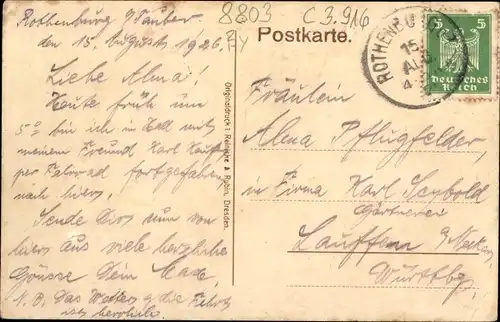 Rothenburg o/Tauber
den 15. August 1926.
Liebe Alma!
Heute früh um
5⁰⁰ bin ich in Hall mit
meinem Freund Karl
per Fahrrad fortgefahren
nach hier.
Sende Dir nun von
hier aus viele herzliche
Grüsse Dein
N.B. Das Wetter & die Fahrt
ist herrlich.
8803
C 3.916
Postkarte.
ROTHENBU
15
AUG
5 5
Deutsches
Reich
Originaldruck i. Reinicke & Rubin, Dresden.
Fräulein
Alma Pflugfelder,
in Firma Karl Seybold
Gärtnerei
Lauffen a/Neckar
Württbg.